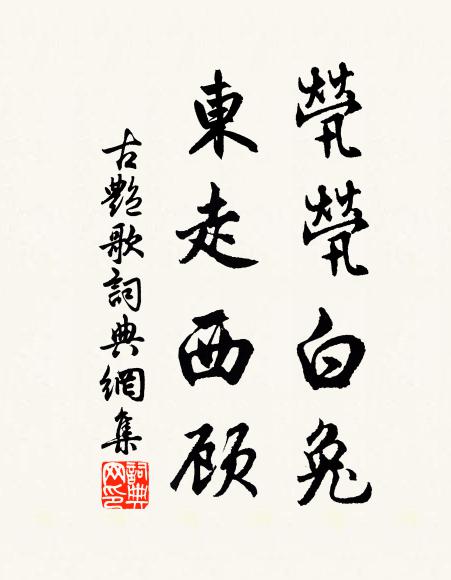 煢煢白兔
東走西顧
古艷歌詞典網集
詞典网印